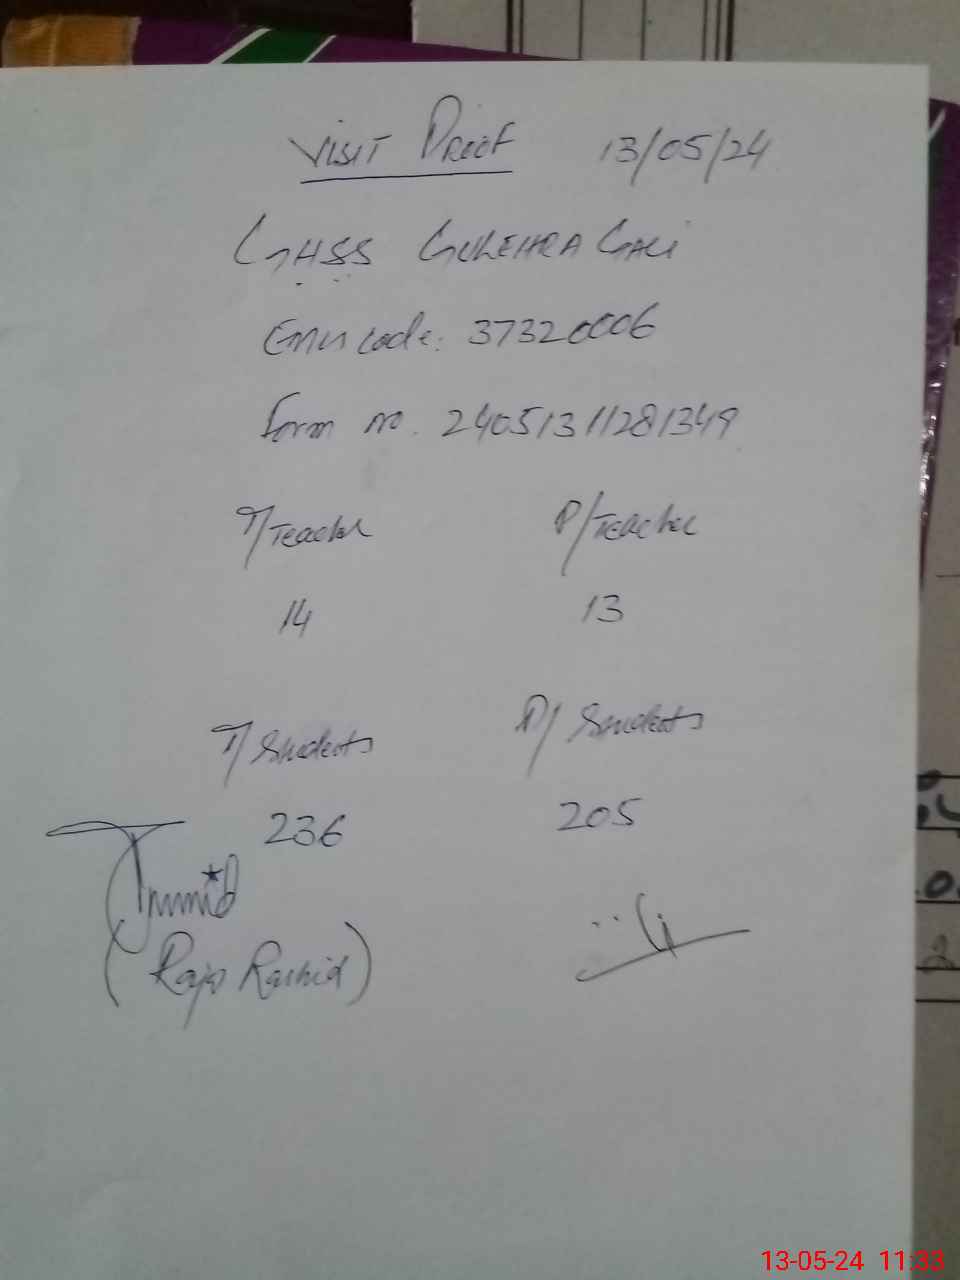 VISIT PROOF 13/05/24
GHSS GULEHRA GALI
EMIS code: 37320006
Form no. 24051311281349
T/Teacher P/Teacher
14 13
T/Students P/Students
236 205
(Raja Rashid)
13-05-24 11:33